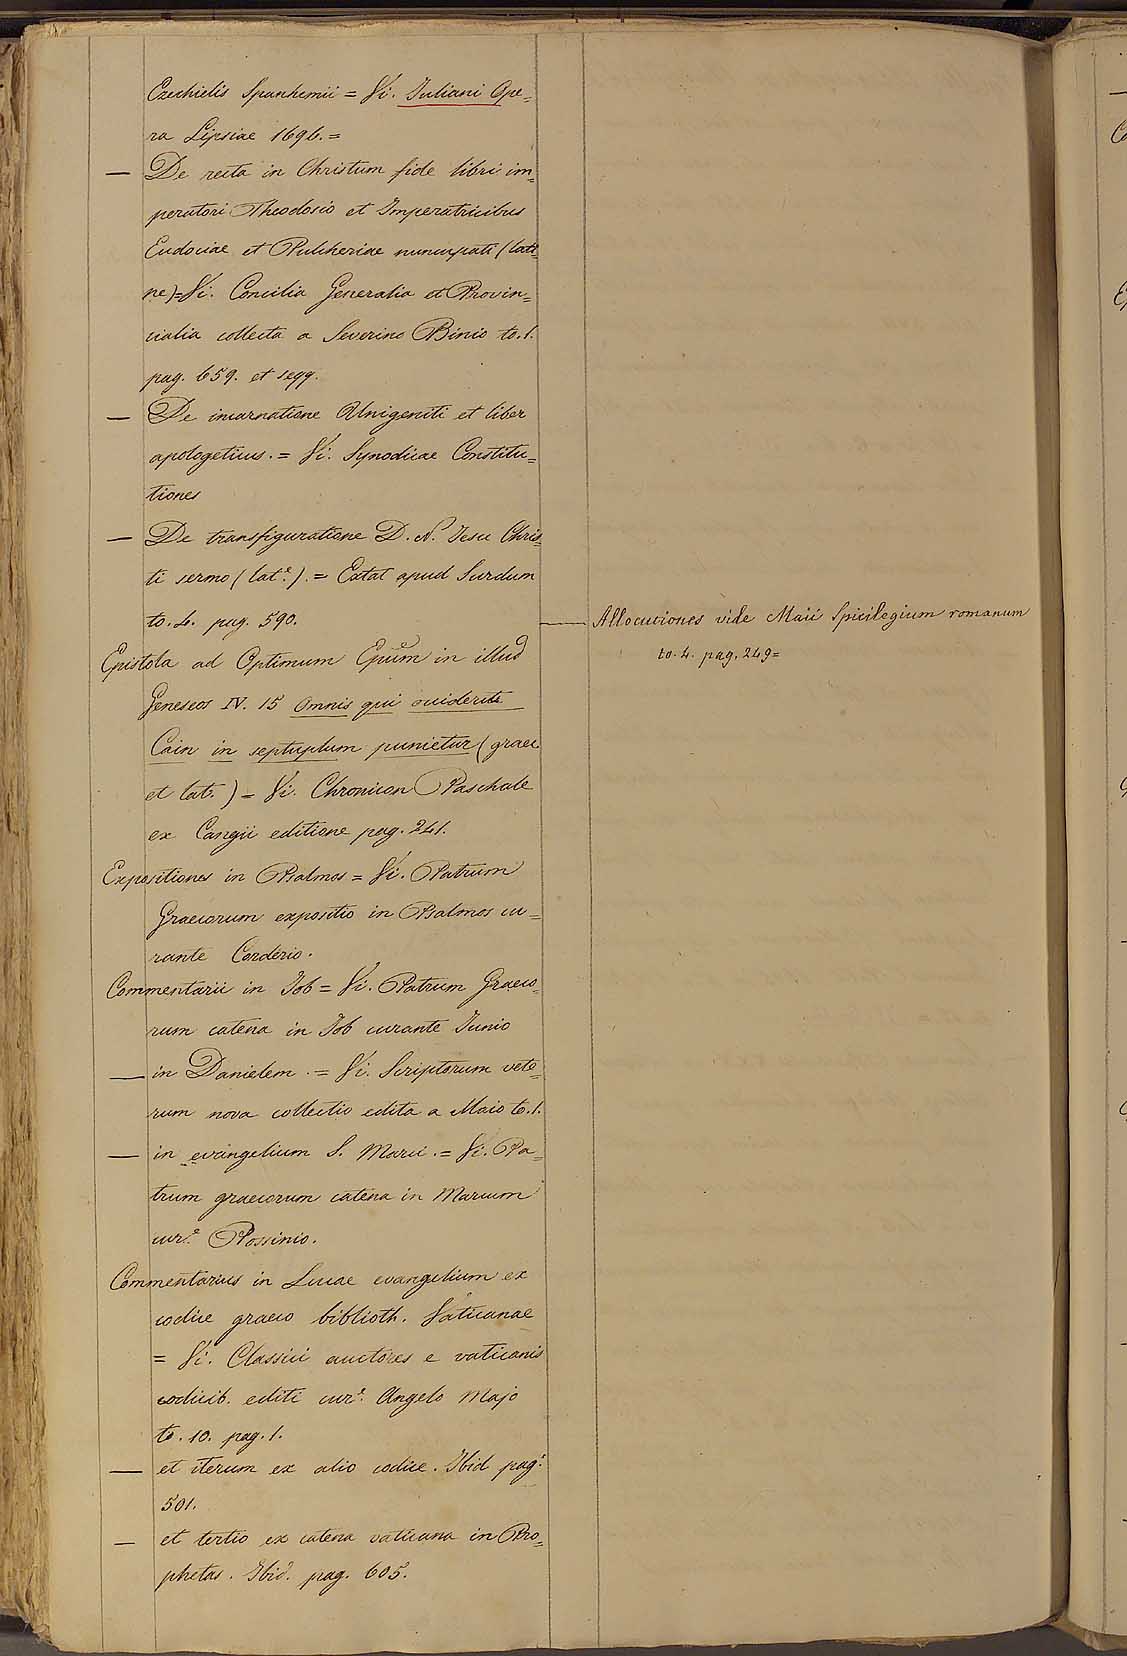 Ezechielis Spanhemii = Vi. Iuliani Ope=
ra Lipsiae 1696. =
— De recta in Christum fide libri im=
peratori Theodosio et Imperatricibus
Eudociae et Pulcheriae nuncupati (lati=
ne) = Vi. Concilia Generalia et Provin=
cialia collecta a Severino Binio to. 1.
pag. 659. et seqq.
— De incarnatione Unigeniti et liber
apologeticus. = Vi. Synodicae Constitu=
tiones
— De transfiguratione D. N. Jesu Chris=
ti sermo (lat.e) = Extat apud Surdum
to. 4. pag. 590.
— Allocutiones vide Maii Spicilegium romanum
to. 4. pag. 249=
Epistola ad Optimum Epum in illud
Geneseos IV. 15 Omnis qui occiderit
Cain in septuplum punietur (graec
et lat.) = Vi. Chronicon Paschale
ex Cangii editione pag. 241.
Expositiones in Psalmos = Vi. Patrum
Graecorum expositio in Psalmos cu=
rante Corderio.
Commentarii in Job = Vi. Patrum Graeco=
rum catena in Job curante Junio
— in Danielem. = Vi. Scriptorum vete=
rum nova collectio edita a Maio to. 1.
— in evangelium S. Marci. = Vi. Pa=
trum graecorum catena in Marcum
cur.e Possinio.
Commentarius in Lucae evangelium ex
codice graeco biblioth. Vaticanae
= Vi. Classici auctores e vaticanis
codicib. editi cur.e Angelo Majo
to. 10. pag. 1.
— et iterum ex alio codice. Ibid pag.
501.
— et tertio ex catena vaticana in Pro=
phetas. Ibid. pag. 605.